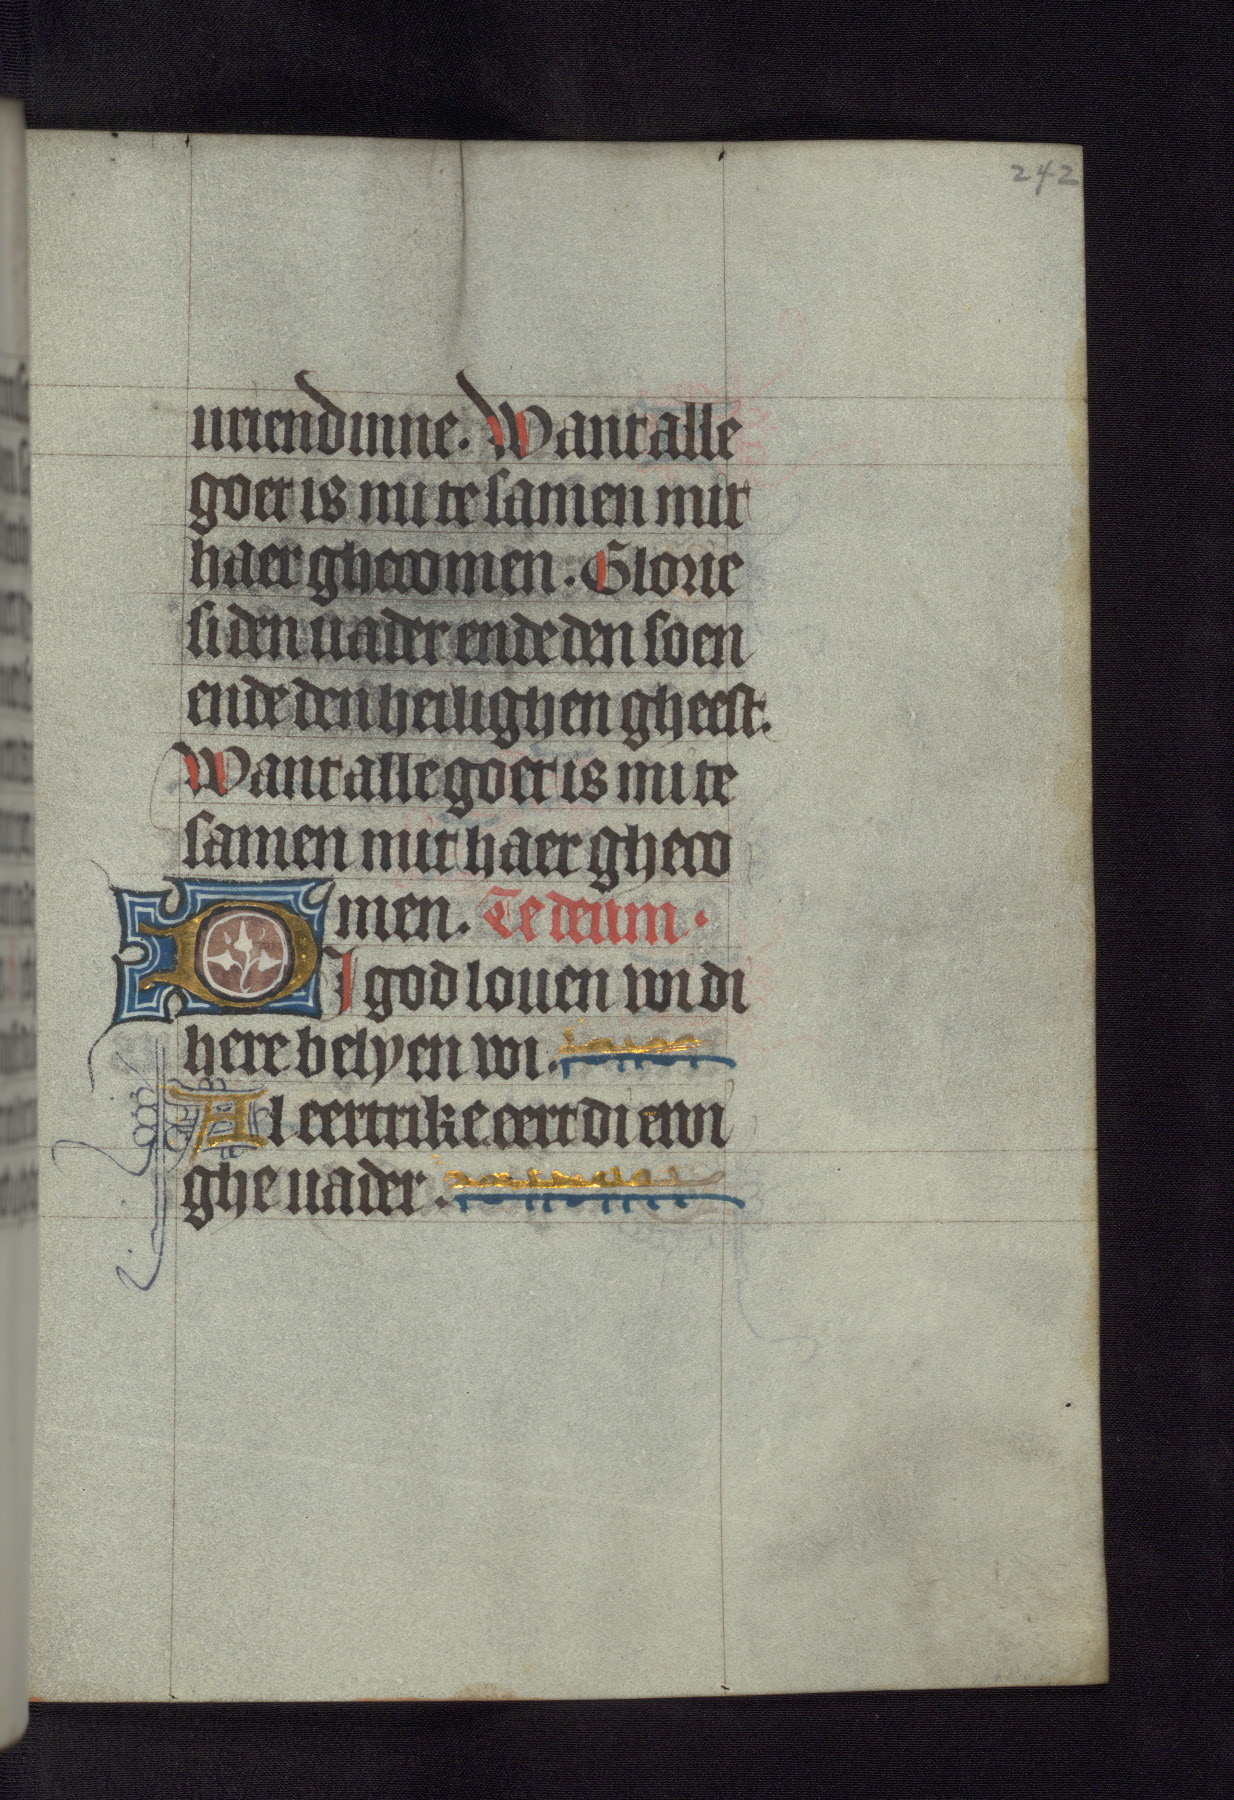 242
uriendinne. Want alle
goet is mi te samen mit
haer ghecomen. Glorie
si den uader ende den soen
ende den heilighen gheest.
Want alle goet is mi te
samen mit haer gheco
men. Te deum.
DI god louen wi di
here belyen wi.
Al eertrike eert di ewi
ghe uader.